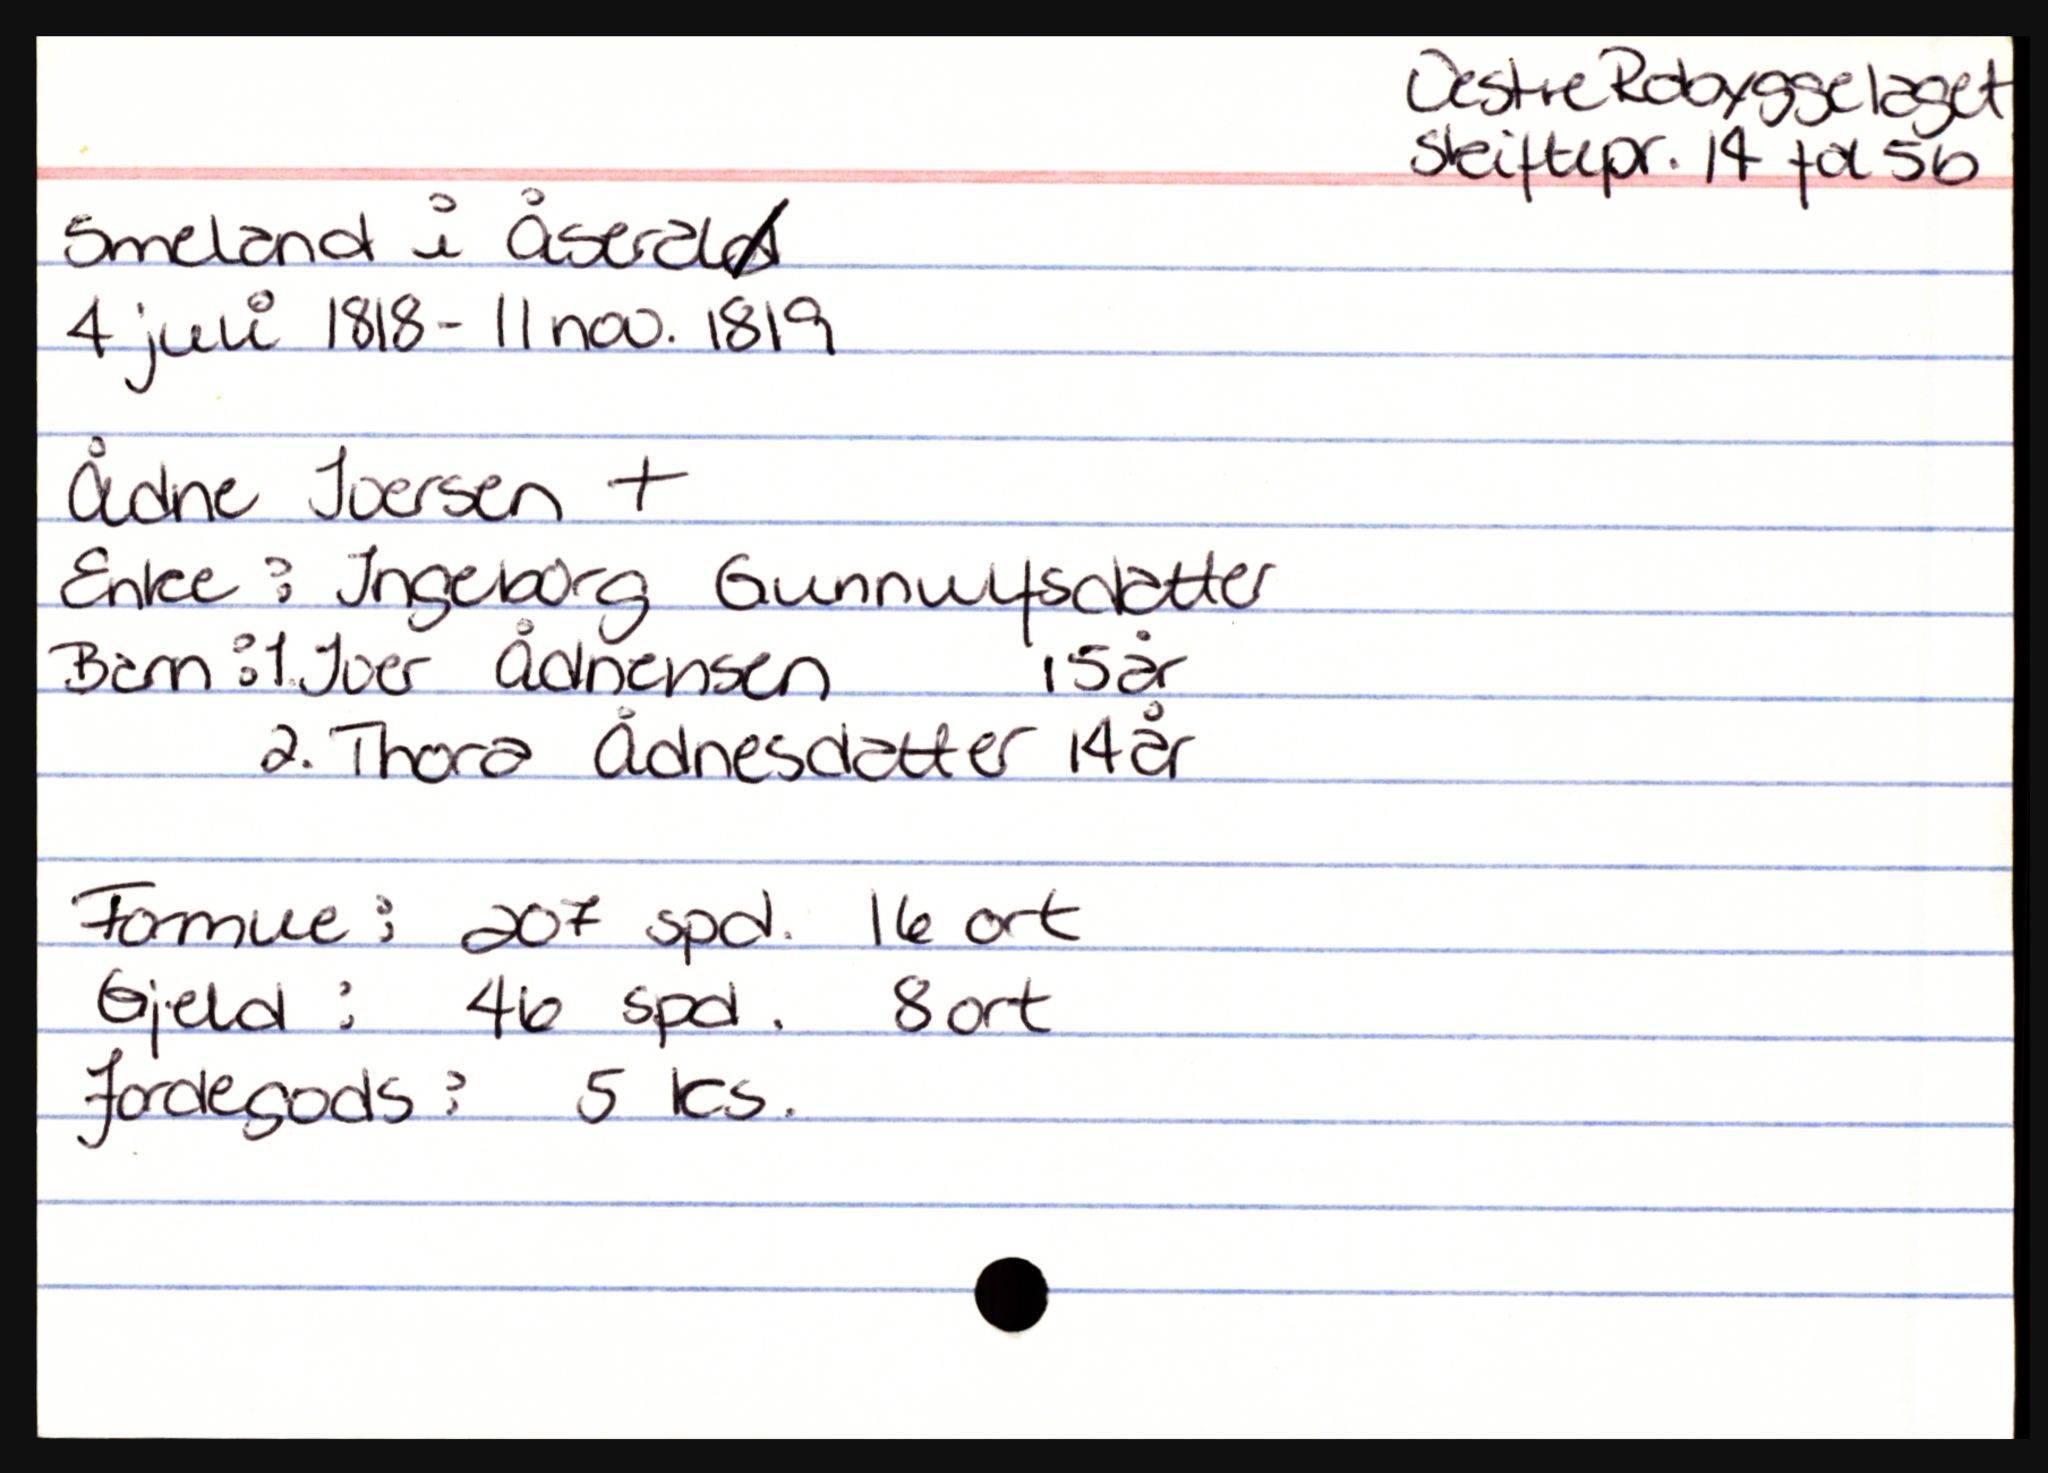 Vestre Robyggelaget
Skiftepr. 14 fol 5b
Smeland i Åseral
4 juli 1818 - 11 nov. 1819
Ådne Iversen +
Enke: Ingeborg Gunnulfsdatter
Barn: 1. Iver Ådnensen 15 år
2. Thora Ådnesdatter 14 år
Formue: 207 spd. 16 ort
Gjeld: 46 spd. 8 ort
Jordegods: 5 ks.